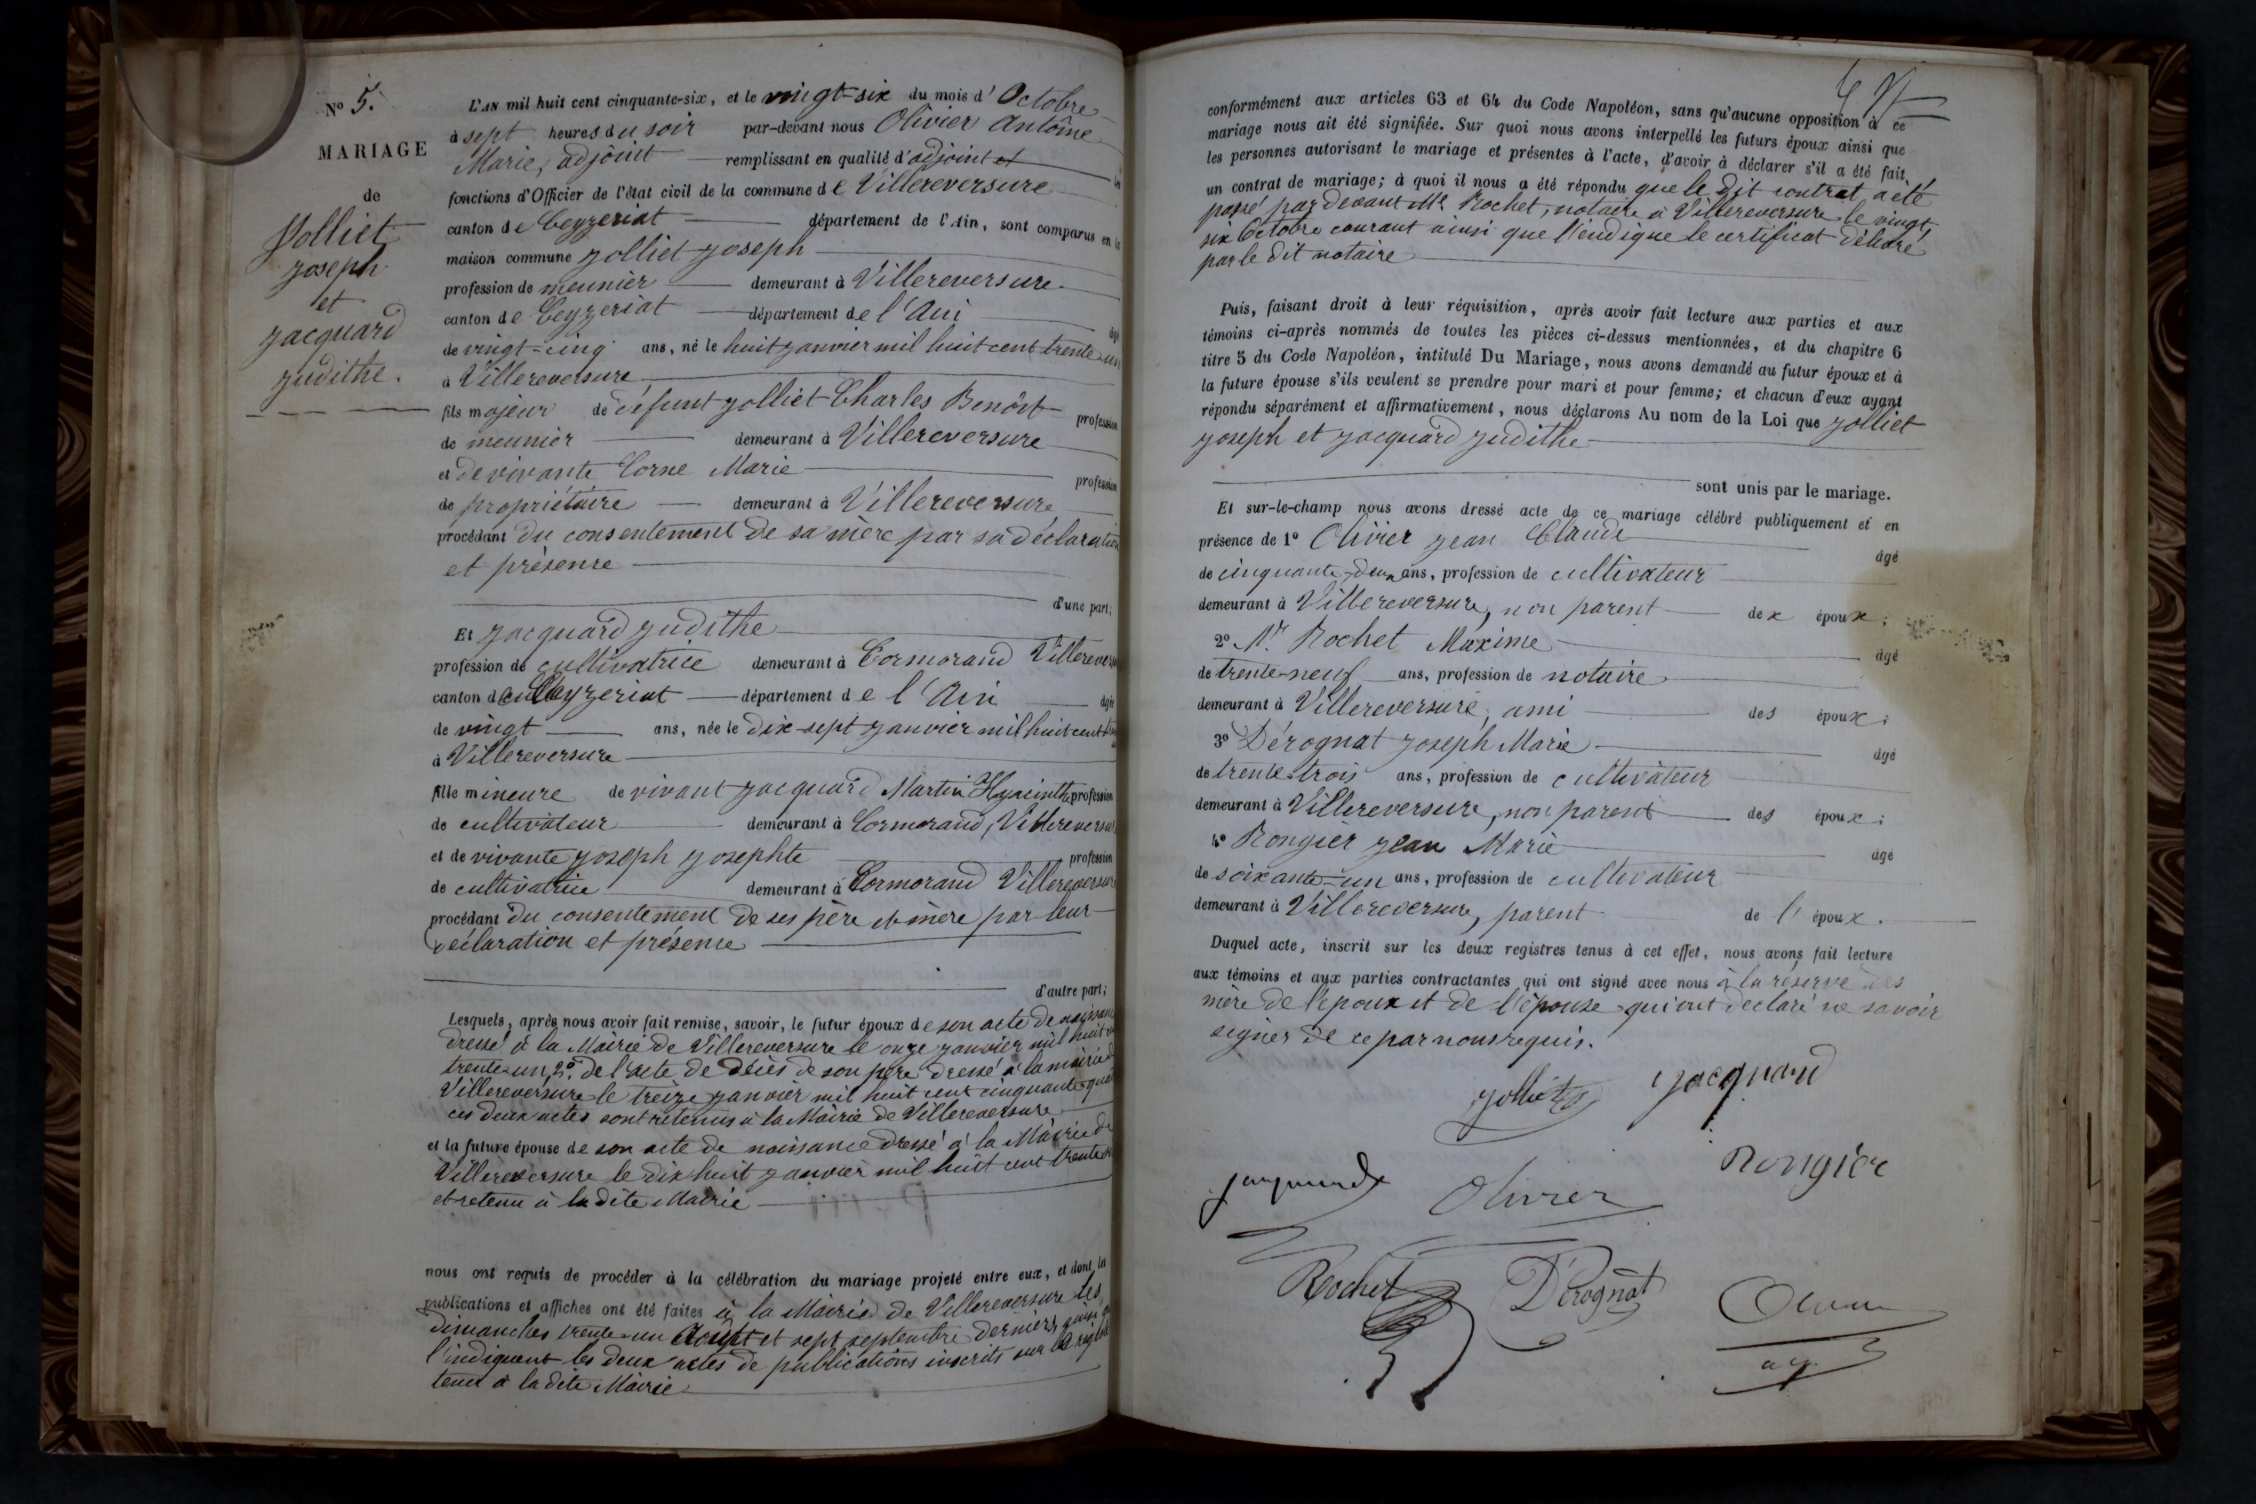 N° 5.
MARIAGE
de
Jolliet
Joseph
et
Jacquard
Judithe.
L'AN mil huit cent cinquante-six, et le vingt-six du mois d'Octobre
à sept heures du soir par-devant nous Olivier Antoine
Marie, adjoint remplissant en qualité d'adjoint et les
fonctions d'Officier de l'état civil de la commune de Villereversure
canton de Ceyzeriat département de l'Ain, sont comparus en la
maison commune Jolliet Joseph
profession de meunier demeurant à Villereversure
canton de Ceyzeriat département de l'Ain âgé
de vingt-cinq ans, né le huit Janvier mil huit cent trente-un
à Villereversure
fils majeur de défunt Jolliet Charles Benoit profession
de meunier demeurant à Villereversure
et de vivante Corne Marie profession
de propriétaire demeurant à Villereversure
procédant du consentement de sa mère par sa déclaration
et présence
d'une part;
Et Jacquard Judithe
profession de cultivatrice demeurant à Cormorand Villereversure
canton de Ceyzeriat département de l'Ain âgée
de vingt ans, née le dix-sept Janvier mil huit cent
à Villereversure
fille mineure de vivant Jacquard Martin Hyacinthe profession
de cultivateur demeurant à Cormorand, Villereversure
et de vivante Joseph Josephte profession
de cultivatrice demeurant à Cormorand Villereversure
procédant du consentement de ses père et mère par leur
déclaration et présence
d'autre part;
Lesquels, après nous avoir fait remise, savoir, le futur époux de son acte de naissance
dressé à la Mairie de Villereversure le onze Janvier mil huit cent
trente-un, 2° de l'acte de décès de son père dressé à la mairie de
Villereversure le treize Janvier mil huit cent cinquante-quatre
ces deux actes sont retenus à la Mairie de Villereversure
et la future épouse de son acte de naissance dressé à la Mairie de
Villereversure le dix huit Janvier mil huit cent trente
et retenu à la dite Mairie
nous ont requis de procéder à la célébration du mariage projeté entre eux, et dont les
publications et affiches ont été faites à la Mairie de Villereversure les
dimanches trente-un Août et sept septembre derniers, ainsi que
l'indiquent les deux actes de publications inscrits sur le registre
tenu à la dite Mairie
conformément aux articles 63 et 64 du Code Napoléon, sans qu'aucune opposition à ce
mariage nous ait été signifiée. Sur quoi nous avons interpellé les futurs époux ainsi que
les personnes autorisant le mariage et présentes à l'acte, d'avoir à déclarer s'il a été fait
un contrat de mariage; à quoi il nous a été répondu que le dit contrat a été
passé par devant Me Rochet, notaire à Villereversure le vingt
six Octobre courant ainsi que l'endique le certificat délivré
par le dit notaire
Puis, faisant droit à leur réquisition, après avoir fait lecture aux parties et aux
témoins ci-après nommés de toutes les pièces ci-dessus mentionnées, et du chapitre 6
titre 5 du Code Napoléon, intitulé Du Mariage, nous avons demandé au futur époux et à
la future épouse s'ils veulent se prendre pour mari et pour femme; et chacun d'eux ayant
répondu séparément et affirmativement, nous déclarons Au nom de la Loi que Jolliet
Joseph et Jacquard Judithe
sont unis par le mariage.
Et sur-le-champ nous avons dressé acte de ce mariage célébré publiquement et en
présence de 1° Olivier Jean Claude âgé
de cinquante-deux ans, profession de cultivateur
demeurant à Villereversure, non parent dex époux;
2° Mr. Rochet Maxime âgé
de trente-neuf ans, profession de notaire
demeurant à Villereversure, ami des époux;
3° Dérognat Joseph Marie âgé
de trente-trois ans, profession de cultivateur
demeurant à Villereversure, non parent des époux;
4° Rongier Jean Marie âgé
de soixante-un ans, profession de cultivateur
demeurant à Villereversure, parent de l'époux.
Duquel acte, inscrit sur les deux registres tenus à cet effet, nous avons fait lecture
aux témoins et aux parties contractantes qui ont signé avec nous à la réserve des
mère de l'époux et de l'épouse qui ont déclaré ne savoir
signer de ce par nous requis.
Jolliet Jacquard
Rongier
Jacquard Olivier
Rochet Dérognat Olivier